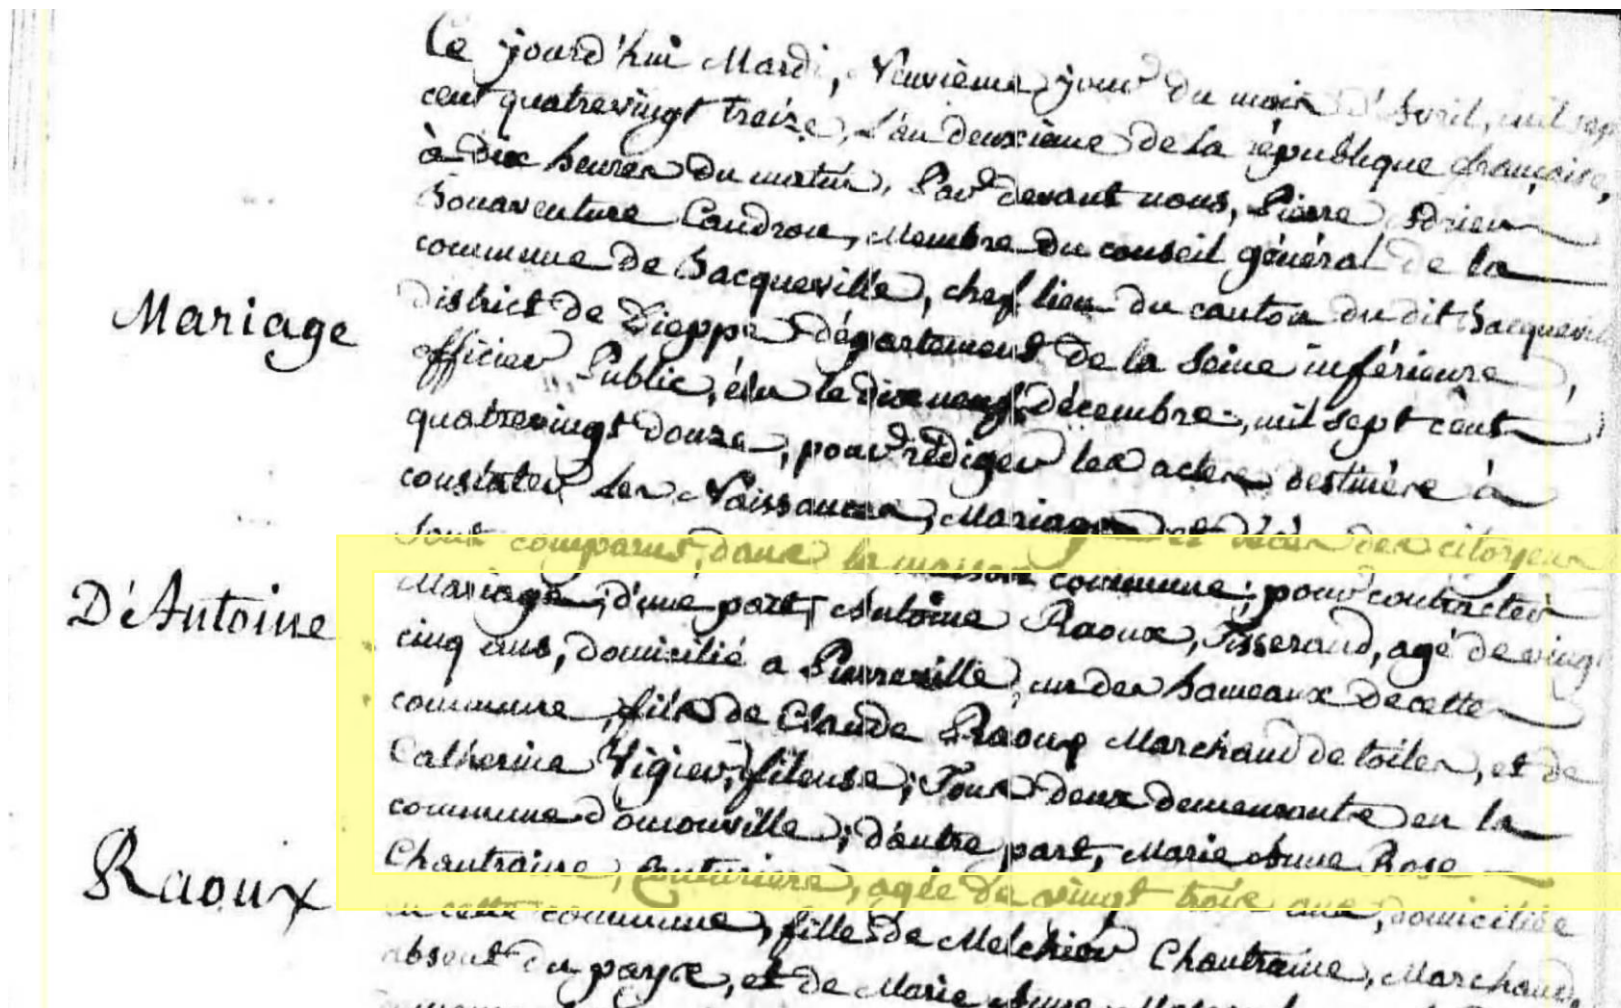 Ce jourd'hui Mardi, Neuvième jour du mois d'Avril, mil sept
cent quatrevingt treize, l'an deuxième de la république françoise,
à dix heures du matin, Par devant nous, Pierre Adrien
Bonaventure Caudron, Membre du conseil général de la
commune de Bacqueville, chef lieu du canton du dit Bacqueville
district de Dieppe département de la Seine inférieure,
Mariage
officier Public, élu le dix neuf décembre, mil sept cent
quatrevingt douze, pour rédiger les actes destinés à
constater les Naissances, Mariages et décès des citoyens
Sont comparus, dans la maison commune; pour contracter
D'Antoine
Mariage; d'une part, Antoine Raoux, Tisserand, agé de vingt
cinq ans, domicilié a Pierreville, un des hameaux de cette
commune, fils de Claude Raoux Marchand de toiles, et de
Catherine Vigier, fileuse; Tous deux demeurants en la
commune d'omonville; d'autre part, Marie Anne Rose
Raoux
Chantraine, couturiere, agée de vingt trois ans, domiciliée
en cette commune, fille de Melchior Chantraine, Marchand
absent du pays, et de Marie Anne